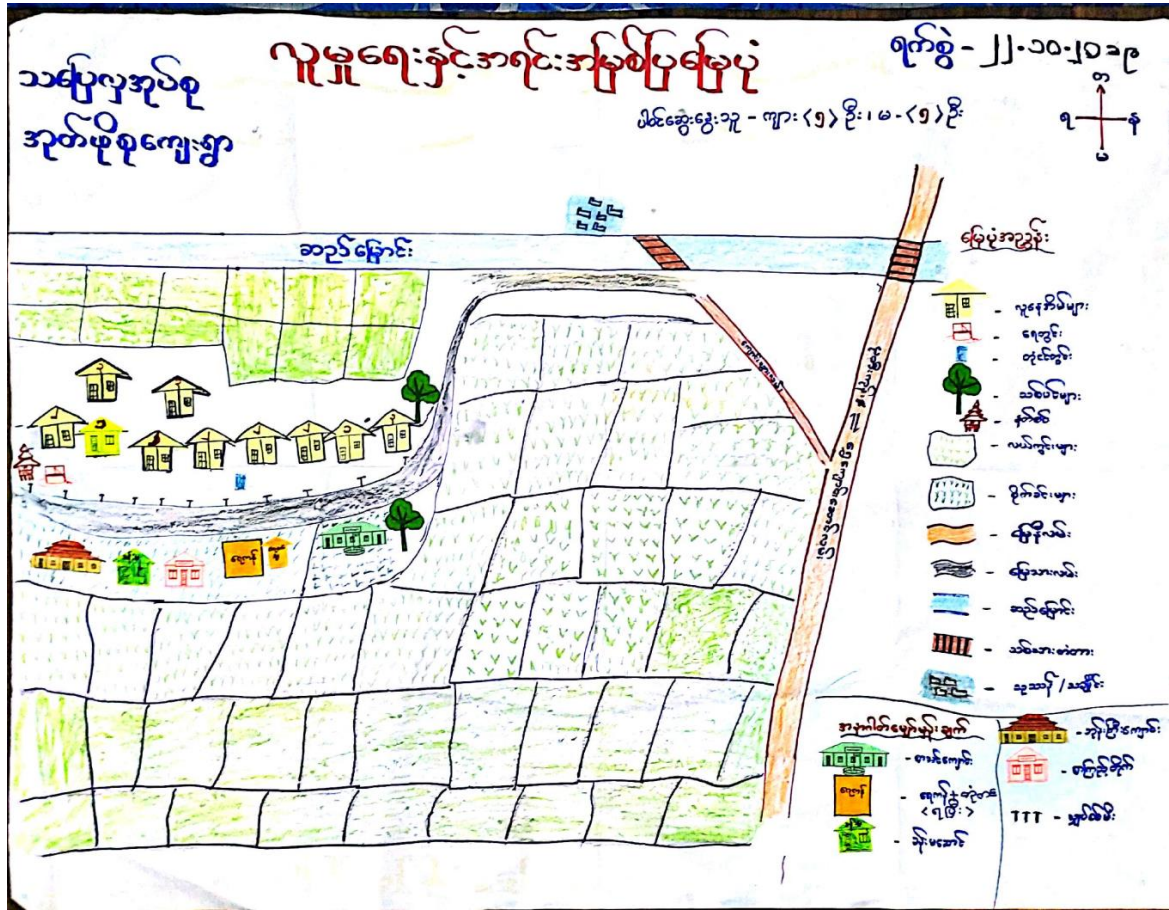 သပြေလှအုပ်စု
အုတ်ဖိုစုကျေးရွာ
လူမှုရေးနှင့်အရင်းအမြစ်ပြမြေပုံ
ရက်စွဲ - ၂၂.၁၀.၂၀၁၉
ပါဝင်ဆွေးနွေးသူ - ကျား <၅> ဦး၊ မ - <၅> ဦး
တ
ရ
န
မ
ဆည်မြောင်း
မြေပုံအညွှန်း
- လူနေအိမ်များ
- ရေတွင်း
- တုံင်တွင်း
- သစ်ပင်များ
- နတ်စင်
- လယ်ကွင်းများ
- စိုက်ခင်းများ
- မြေနီလမ်း
- မြေသားလမ်း
- ဆည်မြောင်း
- သစ်သားတံတား
- သုသာန် / သင်္ချိုင်း
ရေကန်
အနာဂါတ်မျှော်မှန်းချက်
- စာသင်ကျောင်း
ရေကန်
- ဘုန်းကြီးကျောင်း
- စာကြည့်တိုက်